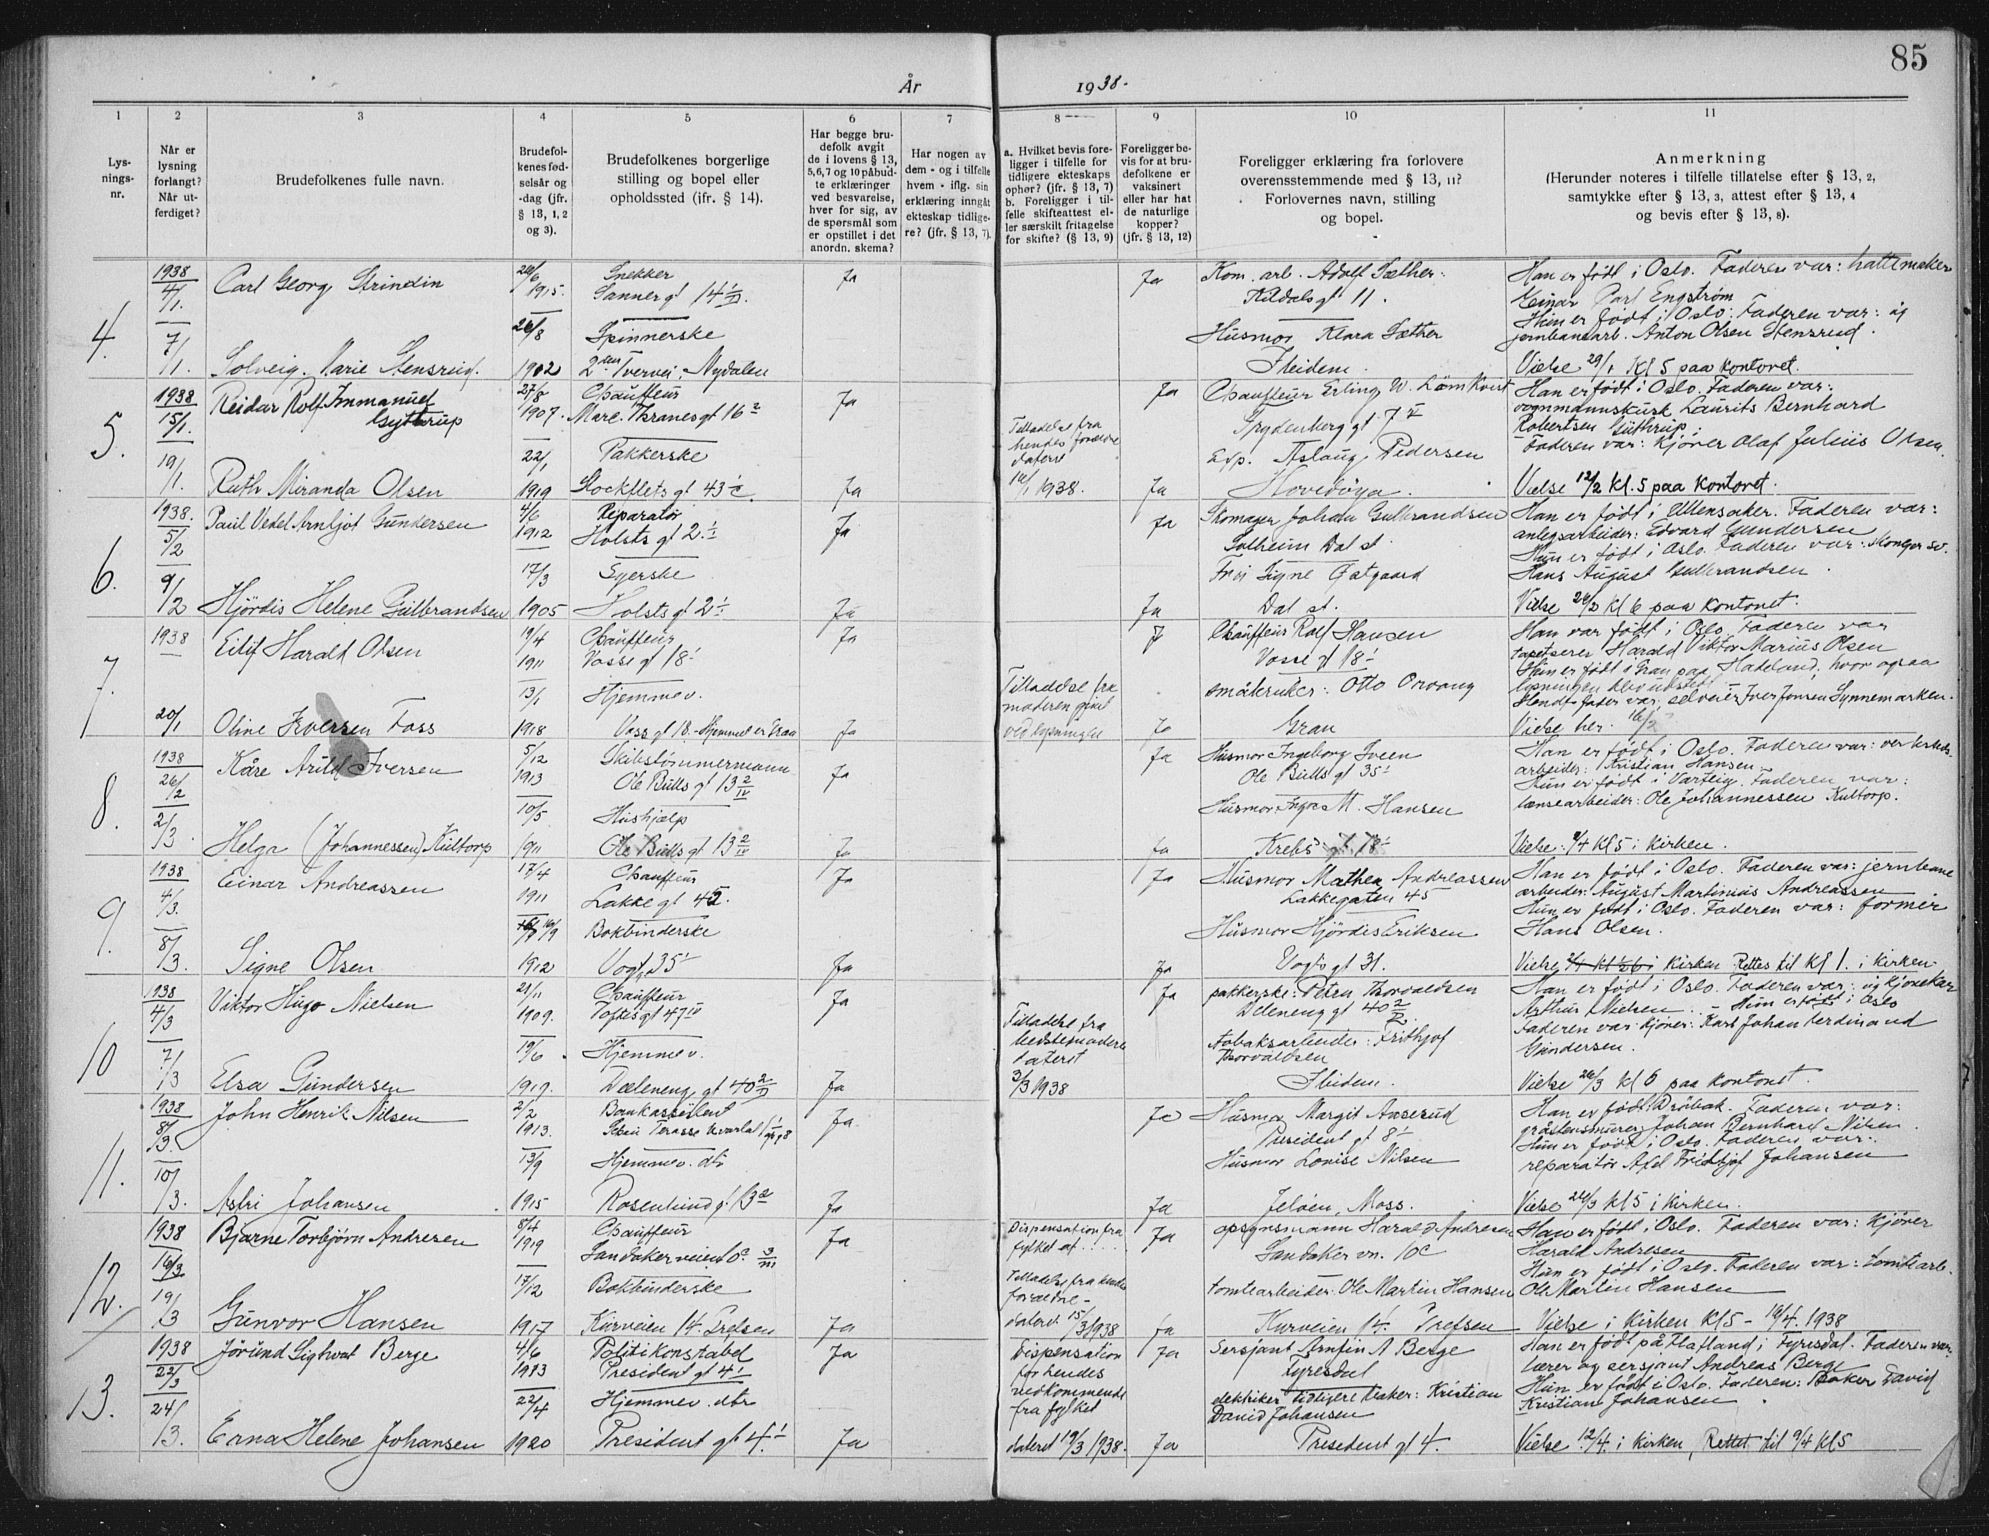 85
År 1938.
1 2 3 4 5 6 7 8 9 10 11
Lys-
nings-
nr.
Når er
lysning
forlangt?
Når ut-
ferdiget?
Brudefolkenes fulle navn.
Brudefol-
kenes fød-
selsår og
-dag (jfr.
§ 13, 1, 2
og 3).
Brudefolkenes borgerlige
stilling og bopel eller
opholdssted (jfr. § 14).
Har begge bru-
defolk avgit
de i lovens § 13,
5, 6, 7 og 10 påbud-
te erklæringer
ved besvarelse,
hver for sig, av
de spørsmål som
er opstillet i det
anordn. skema?
Har nogen av
dem - og i tilfelle
hvem - iflg. sin
erklæring inngått
ekteskap tidlige-
re? (jfr. § 13, 7).
a. Hvilket bevis fore-
ligger i tilfelle for
tidligere ekteskaps
ophør? (jfr. § 13, 7)
b. Foreligger i til-
felle skifteattest el-
ler særskilt fritagelse
for skifte? (§ 13, 9)
Foreligger be-
vis for at bru-
defolkene er
vaksinert
eller har hat
de naturlige
kopper?
(jfr. § 13, 12)
Foreligger erklæring fra forlovere
overensstemmende med § 13, 11?
Forlovernes navn, stilling
og bopel.
Anmerkning
(Herunder noteres i tilfelle tillatelse efter § 13, 2,
samtykke efter § 13, 3, attest efter § 13, 4
og bevis efter § 13, 8).
4.
1938 4/1. 7/1.
Carl Georg Strindin
1915. Snekker
Sanner gt 14
Ja
Ja
Kom. arb. Adolf Sæther.
11.
Han er født i Oslo. Faderen var: hattemaker
Einar Carl Engström
26/8 Spinnerske
Husmor Klara Sæther
Hun er født i Oslo. Faderen var:
jernbanearb. Anton Olsen Stensrud.
Solveig Marie Stensrud.
1902 2den Tvervei, Nydalen
Ibidem.
Vielse 29/1 Kl 5 paa kontoret.
5.
1938 15/1. 19/1.
Reidar Rolf Immanuel
Gyttrup
27/8 1907. Chauffeur
Marc. Thranes gt 16
Ja
Ja
Chauffeur Erling W. Lömkvist
Frydenberg gt 7
Han er født i Oslo. Faderen var:
vognmannskusk Laurits Bernhard
Robertsen Güthrup.
22/1 Pakkerske
Tilladelse fra
hendes foreldre
1938.
Exp. Aslaug Pedersen
Faderen var: kjører Olaf Julius Olsen.
Ruth Miranda Olsen
1919 Stockflets gt 43
Ja
Ja
Hovedøya.
Vielse 12/2 kl. 5 paa kontoret.
6.
1938. 5/2 9/2
Paul Vedel Arnljot Gundersen
4/6 1912 Reparatør
Holsts gt 2.
Ja
Ja
Skomager Johan Gulbrandsen
Solheim Dal st.
Han er født i Ullensaker. Faderen var:
anlegsarbeider: Edvard Gundersen
17/3 Syerske
Fru Signe Østgaard
Hun er født i Oslo. Faderen var:
Hans August Gulbrandsen.
Hjördis Helene Gulbrandsen
1905 Holsts gt 2
Ja
Ja
Dal st.
Vielse 26/2 kl 6 paa kontoret.
7.
1938 20/1
Eilif Harald Olsen
19/4 1911 Chauffeur
Vosse gt 18
Ja
Chauffeur Rolf Hansen
Vosse gt 18
Han var født i Oslo. Faderen var
tapetserer Harald Viktor Marius Olsen
13/1 Hjemmev.
Tilladelse fra
moderen givet
ved lysningen
småbruker: Otto Orvang
Hun er født i Gran paa Hadeland, hvor ogsaa
lysningen blev utstedt.
Oline Iversen Foss
1918 Voss gt 18. - Hjemmet er Gran
Ja
Ja
Gran
Vielse her.
8.
1938 26/2 2/3
Kåre Arild Iversen
5/12 1913 Skibstømmermann
Ole Bulls gt 13
Ja
Ja
Husmor Ingeborg Sveen
Ole Bulls gt 35
Han er født i Oslo. Faderen var:
arbeider: Kristian Hansen
10/5 Hushjælp
Husmor Inga M. Hansen
Hun er født i Varteig. Faderen var:
lænsearbeider: Ole Johannessen Kultorp.
Helga (Johannessen) Kultorp
1911 Ole Bulls gt 13
Ja
Ja
Krebs gt 18
Vielse: 9/4 Kl 5 i kirken.
9.
1938 4/3. 8/3.
Einar Andreassen
17/4 1911 Chauffeur
Lakke gt 45.
Ja
Ja
Husmor Mathea Andreassen
Lakkegaten 45
Han er født i Oslo. Faderen var: jernbane
arbeider: August Martinius Andreassen
Bokbinderske
Husmor Hjördis Eriksen
Hun er født i Oslo. Faderen var: former
Hans Olsen.
Signe Olsen
1912 Vogts 35
Ja
Ja
Vogts gt 31.
Vielse i kirken Rettes til Kl 1. i kirken
10
1938 4/3 7/3
Viktor Hugo Nielsen
21/11 1909. Chauffeur
Toftes gt 47
Ja
Ja
pakkerske: Petra Thorvaldsen
Deleneng gt 40
Han er født i Oslo. Faderen var:
Arthur Nielsen. - Hun er født i Oslo
19/6 Hjemmev.
Tilladelse fra
datert
3/3 1938
Tobaksarbeider: Frithjof
Thorvaldsen
Faderen var kjører: Karl Johan Ferdinand
Gundersen.
Elsa Gundersen
1919. Dæleneng gt 40
Ja
Ibidem.
Vielse 26/3 kl 6 paa kontoret.
11.
1938 8/3. 10/3.
John Henrik Nilsen
2/2 1913. Bankassistent
Terasse kvartal
Ja
Ja
Husmor Margit Aaserud
President gt 8
Han er født: Drøbak. Faderen var:
gråstensmurer Johan Bernhard Nilsen.
13/9 Hjemmev. dtr
Husmor Lovise Nilsen
Hun er født i Oslo. Faderen var:
reparatør Axel Frithjof Johansen
Astri Johansen
1915 Rosenlund gt 13
Ja
Ja
Jeløen, Moss.
Vielse kl 5 i kirken.
12.
1938 16/3 19/3
Bjarne Torbjørn Andresen
8/4 1919 Chauffeur
Sandakerveien 10c
Ja
Dispensation fra
fylket af....
Ja
opsynsmann Harald Andresen
Sandaker vn. 10c
Han er født i Oslo. Faderen var: kjører
Harald Andresen
17/12 Bokbinderske
Tilladelse fra
foreldre -
datert 15/3 1938
tomtearbeider: Ole Martin Hansen
Hun er født i Oslo. Faderen var: tomtearb.
Ole Martin Hansen
Gunvor Hansen
1917 Kurveien 14. Grefsen
Ja
Ja
Kurveien 14. Grefsen
Vielse i kirken Kl 5 - 16/4. 1938
13.
1938 22/3 24/3.
Jörund Sighvat Berge
4/6 1913 Politikonstabel
President gt 4
Ja
Dispensation
for hendes
vedkommende
fra fylket
datert 19/3 1938.
Ja
Sersjant Arnfin A Berge
Fyresdal
Han er født på Flatland i Fyresdal. Faderen var
lærer og sersjant Andreas Berge
22/4 Hjemmev. dtr
elektriker tidligere baker: Kristian
David Johansen
Hun er født i Oslo. Faderen: Baker David
Kristian Johansen.
Erna Helene Johansen
1920 President gt 4.
Ja
Ja
President gt 4.
Vielse 12/4. i kirken, Rettet til 9/4 Kl 5